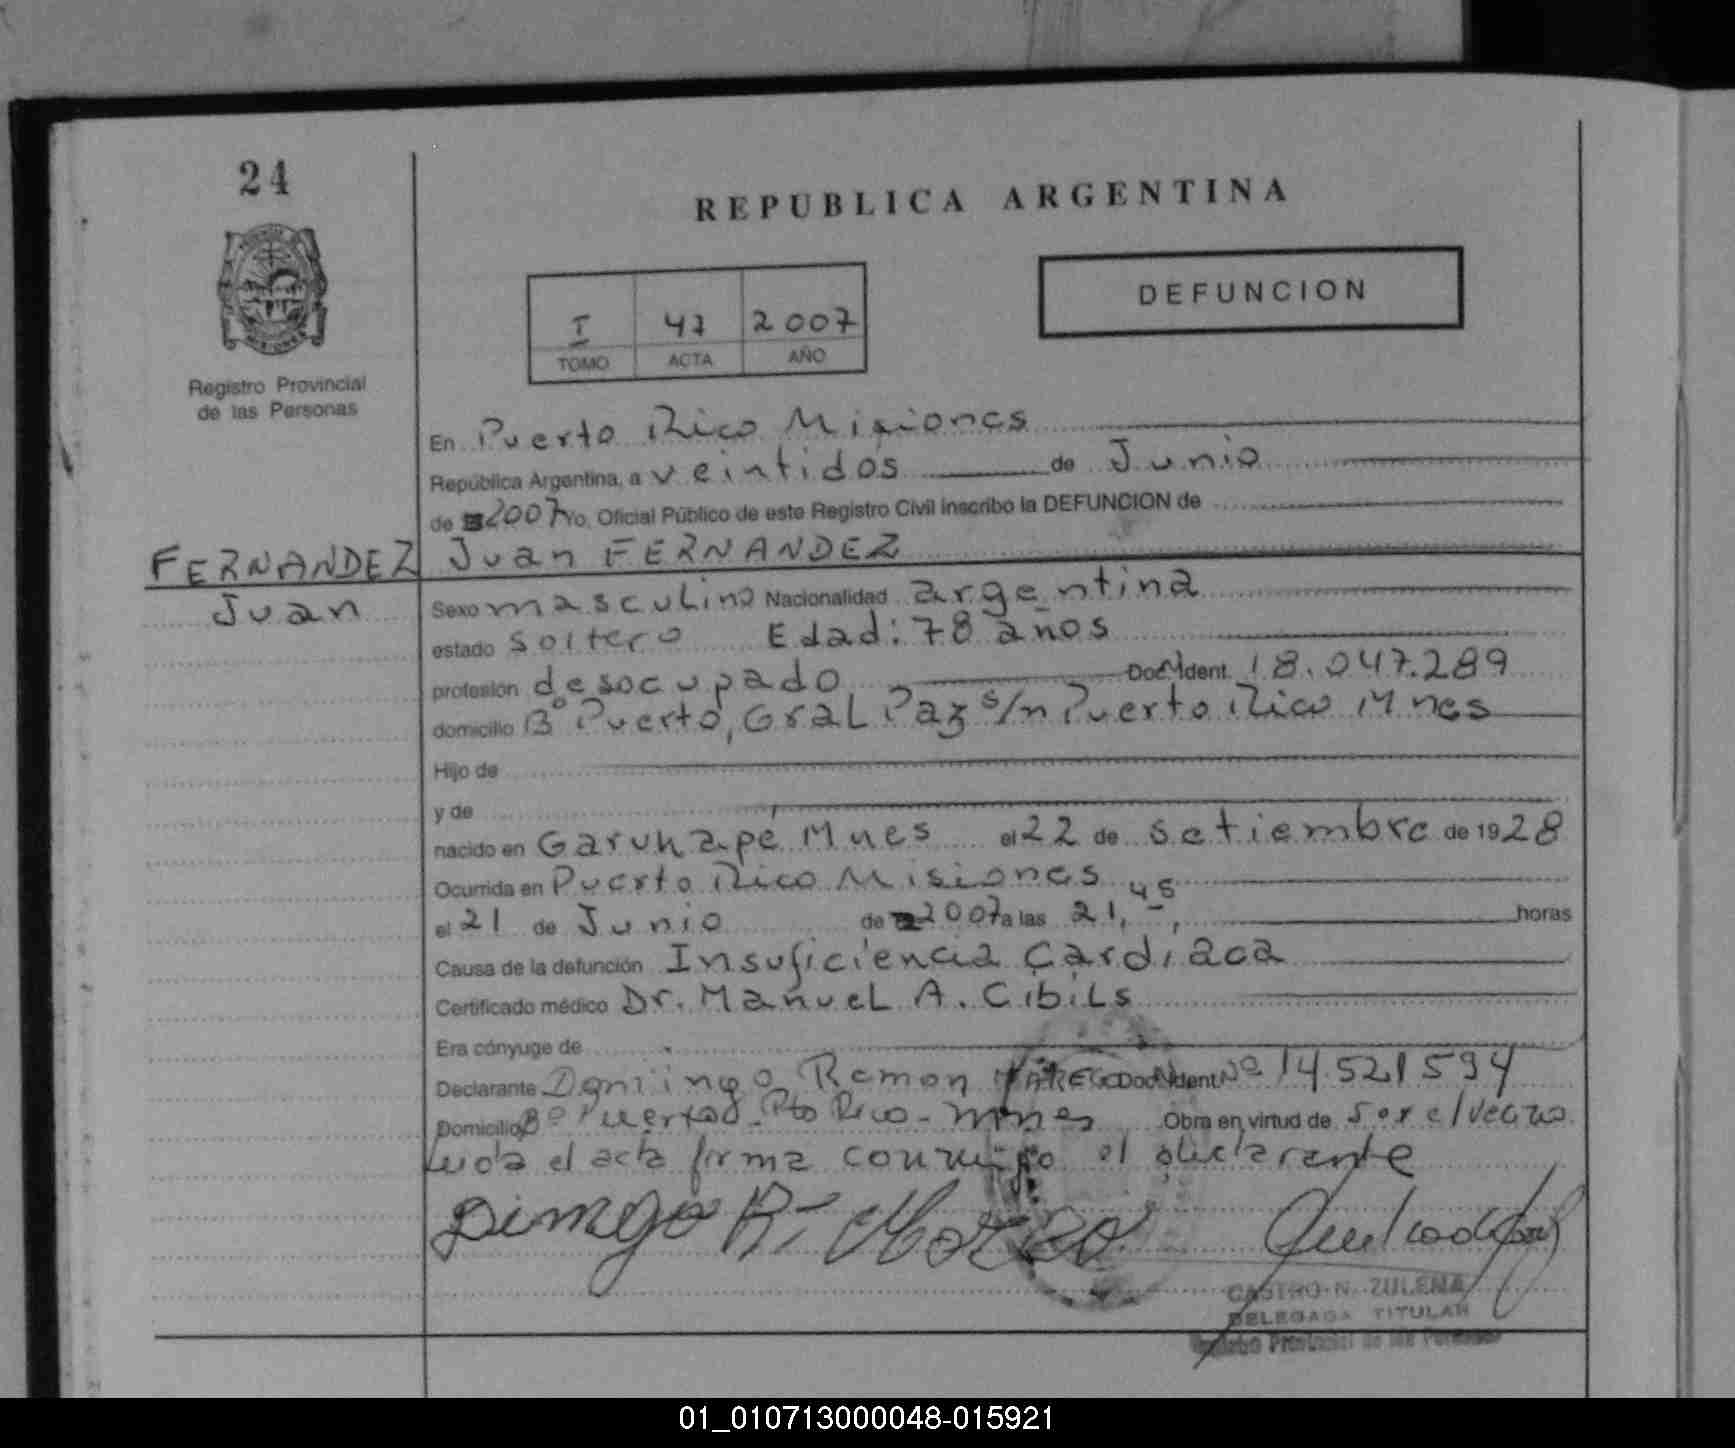 24
REPUBLICA ARGENTINA
DEFUNCION
I 47 2007
TOMO ACTA AÑO
Registro Provincial
de las Personas
En Puerto Rico Misiones
República Argentina, a veintidos de Junio
de 2007 Yo, Oficial Público de este Registro Civil inscribo la DEFUNCION de
FERNANDEZ Juan FERNANDEZ
Juan
Sexo masculino Nacionalidad argentina
estado soltero Edad: 78 años
profesión desocupado Doc. Ident. 18.047.289
domicilio B° Puerto, Gral Paz s/n Puerto Rico Mnes
Hijo de
y de
nacido en Garuhape Mnes el 22 de setiembre de 1928
Ocurrida en Puerto Rico Misiones
el 21 de Junio de 2007 a las 21,45, horas
Causa de la defunción Insuficiencia Cardiaca
Certificado médico Dr. Manuel A. Cibils
Era cónyuge de
Declarante Domingo Ramon Doc. Ident. Nº 14.521594
Domicilio B° Puerto Pto Rico - Mnes Obra en virtud de ser el vecino
leida el acta firma conmigo el declarante
CASTRO N. ZULEMA
DELEGADA TITULAR
Registro Provincial de las Personas
01_010713000048-015921